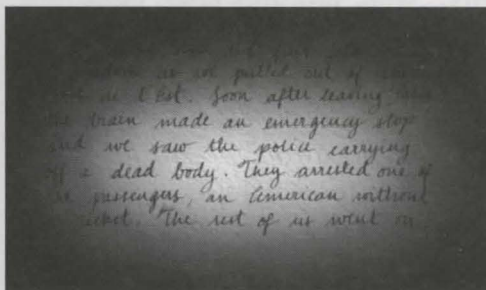 as we pulled out of
in L'Est. Soon after leaving
the train made an emergency stop
and we saw the police carrying
off a dead body. They arrested one of
the passengers, an American without
ticket. The rest of us went on